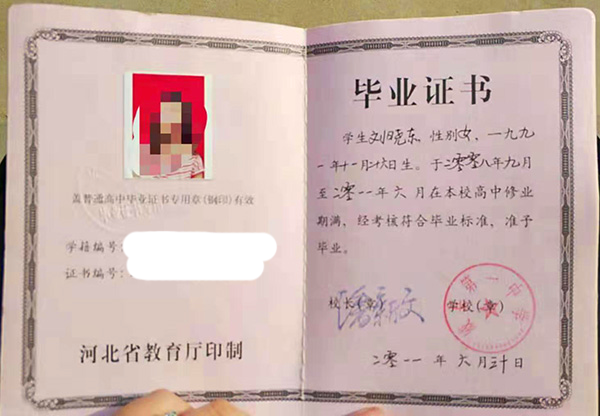 盖普通高中毕业证书专用章(钢印)有效
学籍编号:
证书编号:
河北省教育厅印制
毕业证书
学生刘晓东，性别女，一九九
一年十一月廿六日生。于二零零八年九月
至二零一一年六月在本校高中修业
期满，经考核符合毕业标准，准予
毕业。
校长(章)
学校(章)
第一中学
二零一一年六月三十日